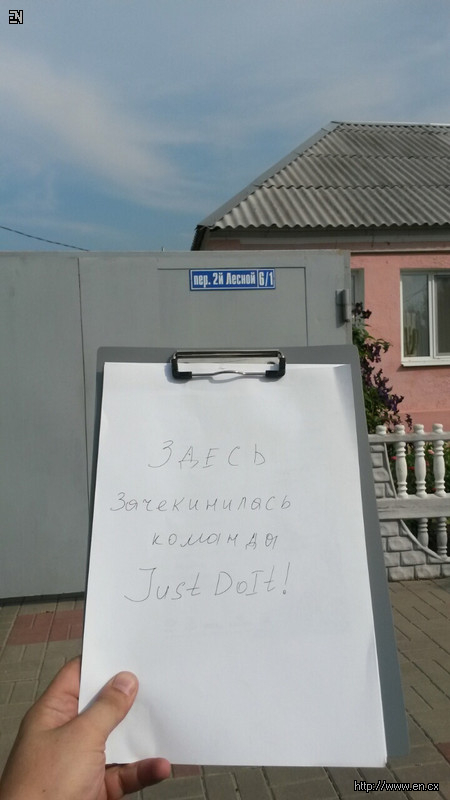 EN
пер. 2й Лесной 6/1
ЗДЕСЬ
Зачекинилась
команда
Just DoIt!
http://www.en.cx